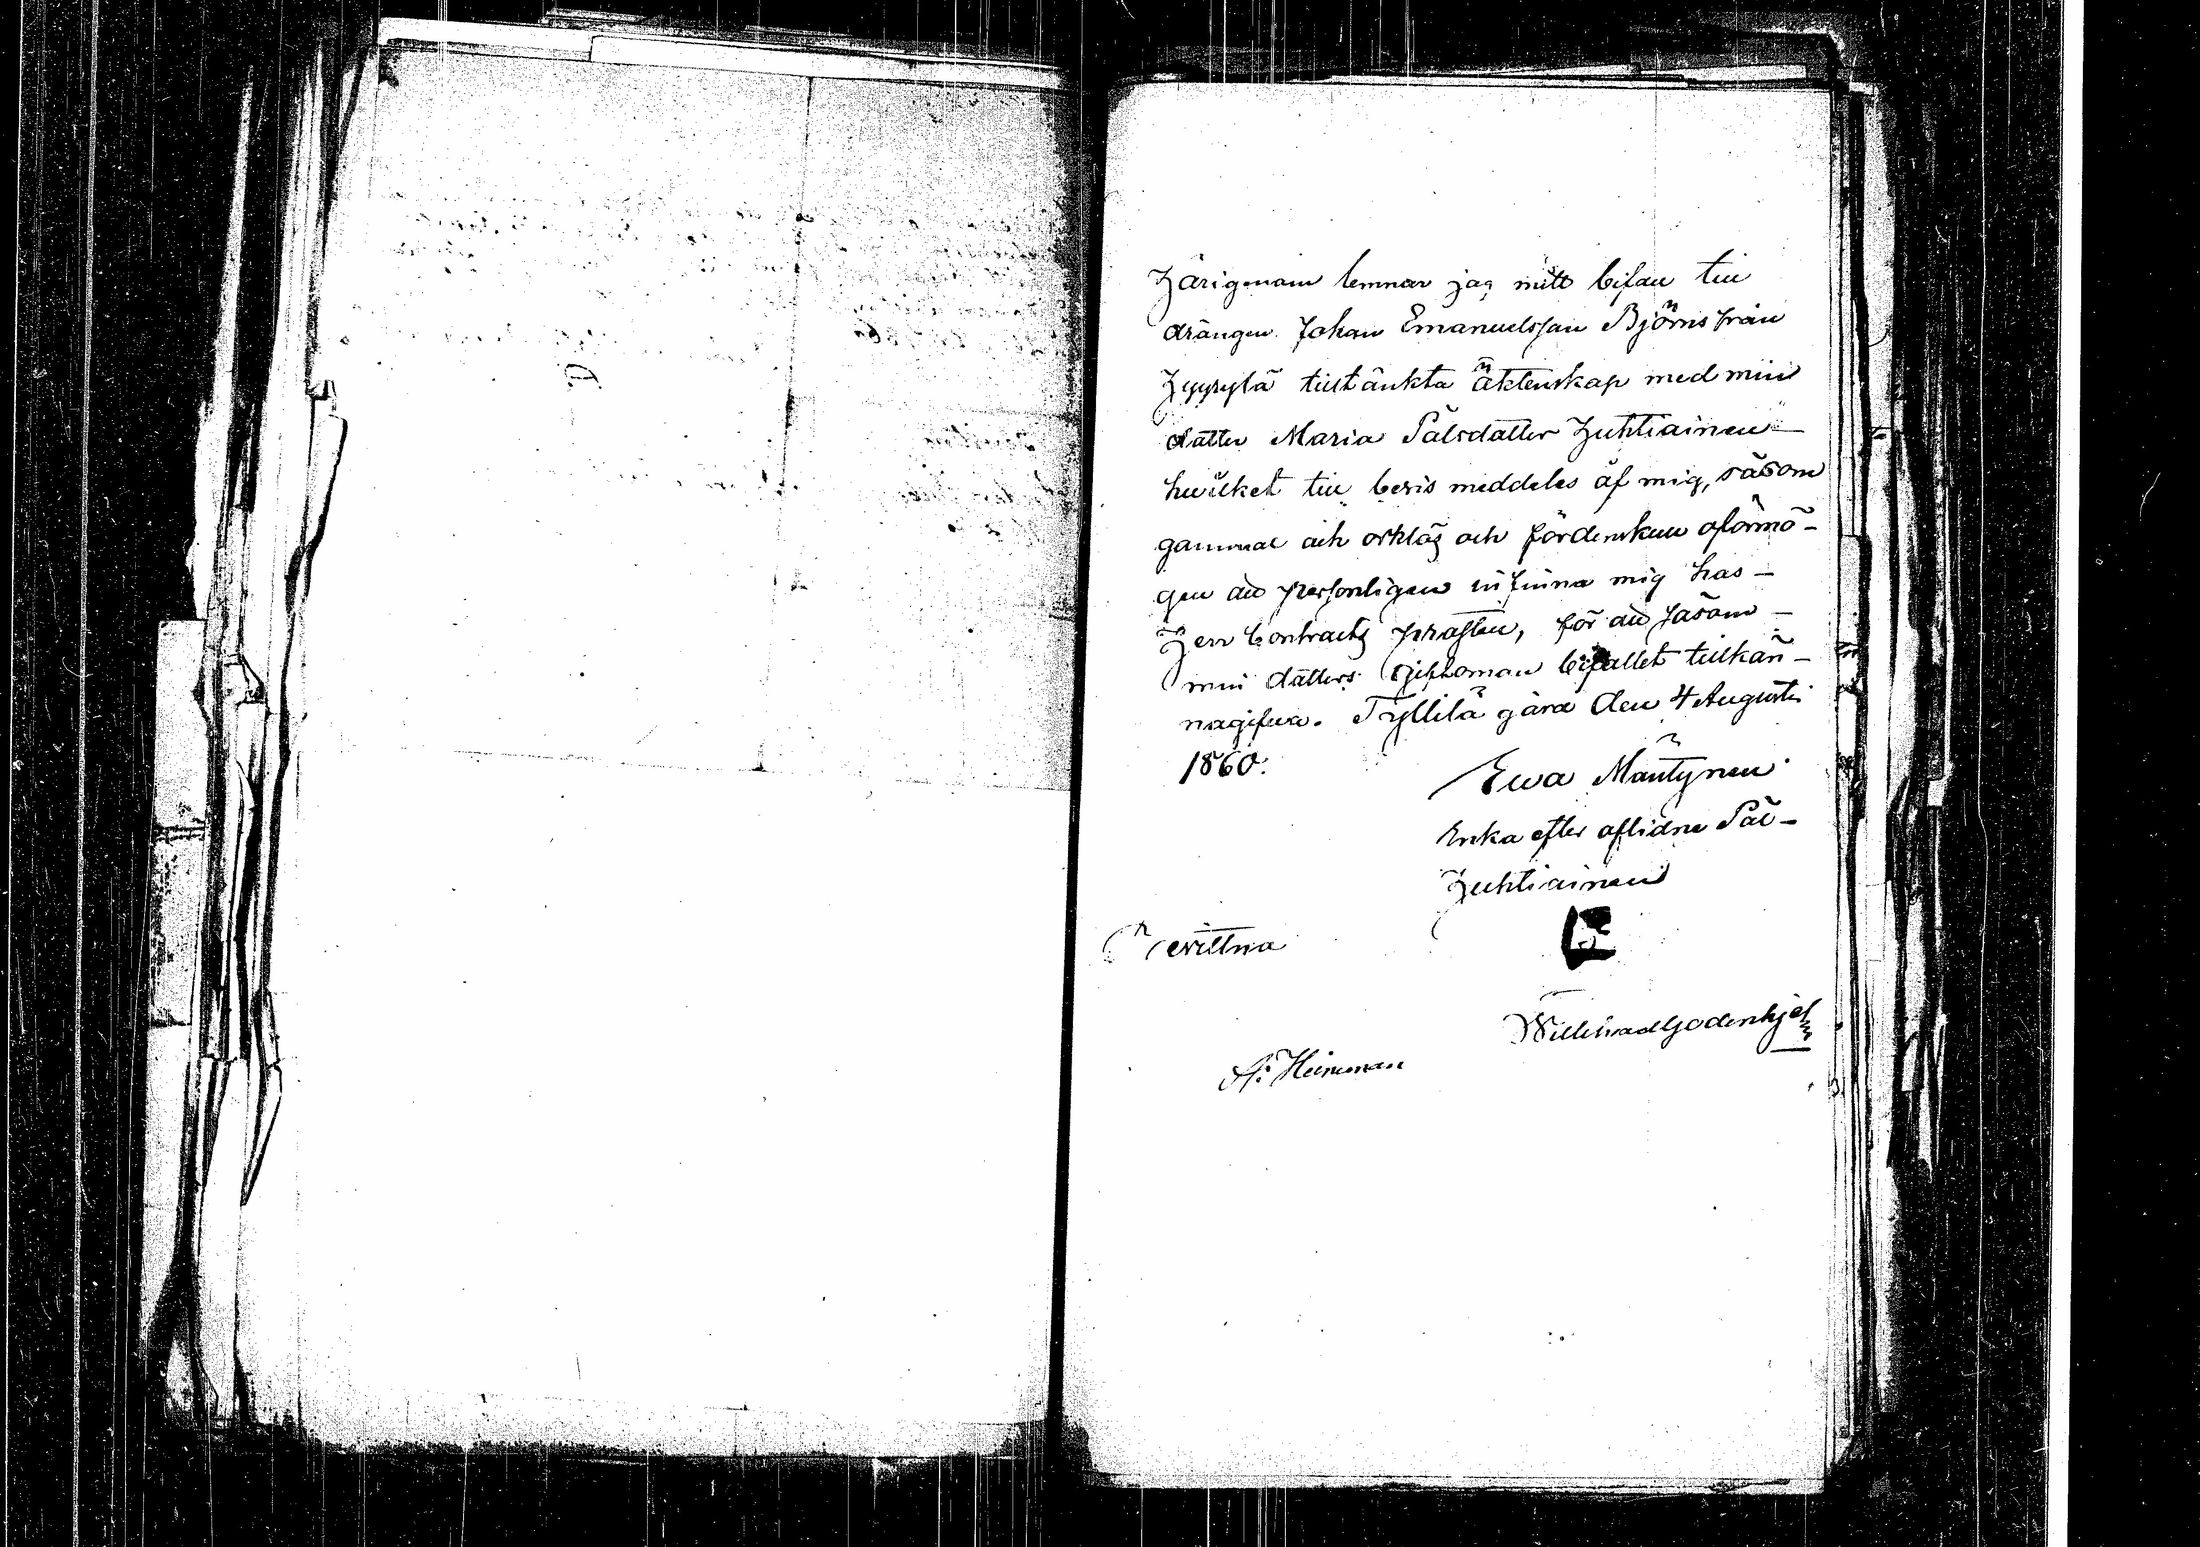 Härigenom lemnar jag mitt bifall till
drängen Johan Emanuelsson Björns från
Hyyrylä tilltänkta äktenskap med min
dotter Maria Pålsdotter Huhtiainen
hvilket till bevis meddeles af mig, såsom
gammal och orklös och fördenskull oförmö-
gen att personligen infinna mig hos
Herr Contracts prosten, för att såsom
min dotters giftoman bifallet tillkän-
nagifva. Tyllilä gård den 4 Augusti
1860.
Ewa Mäntynen
Enka efter aflidne Pål
Huhtiainen
Bevittna
Willehad Godenhjelm
A. Heinonen